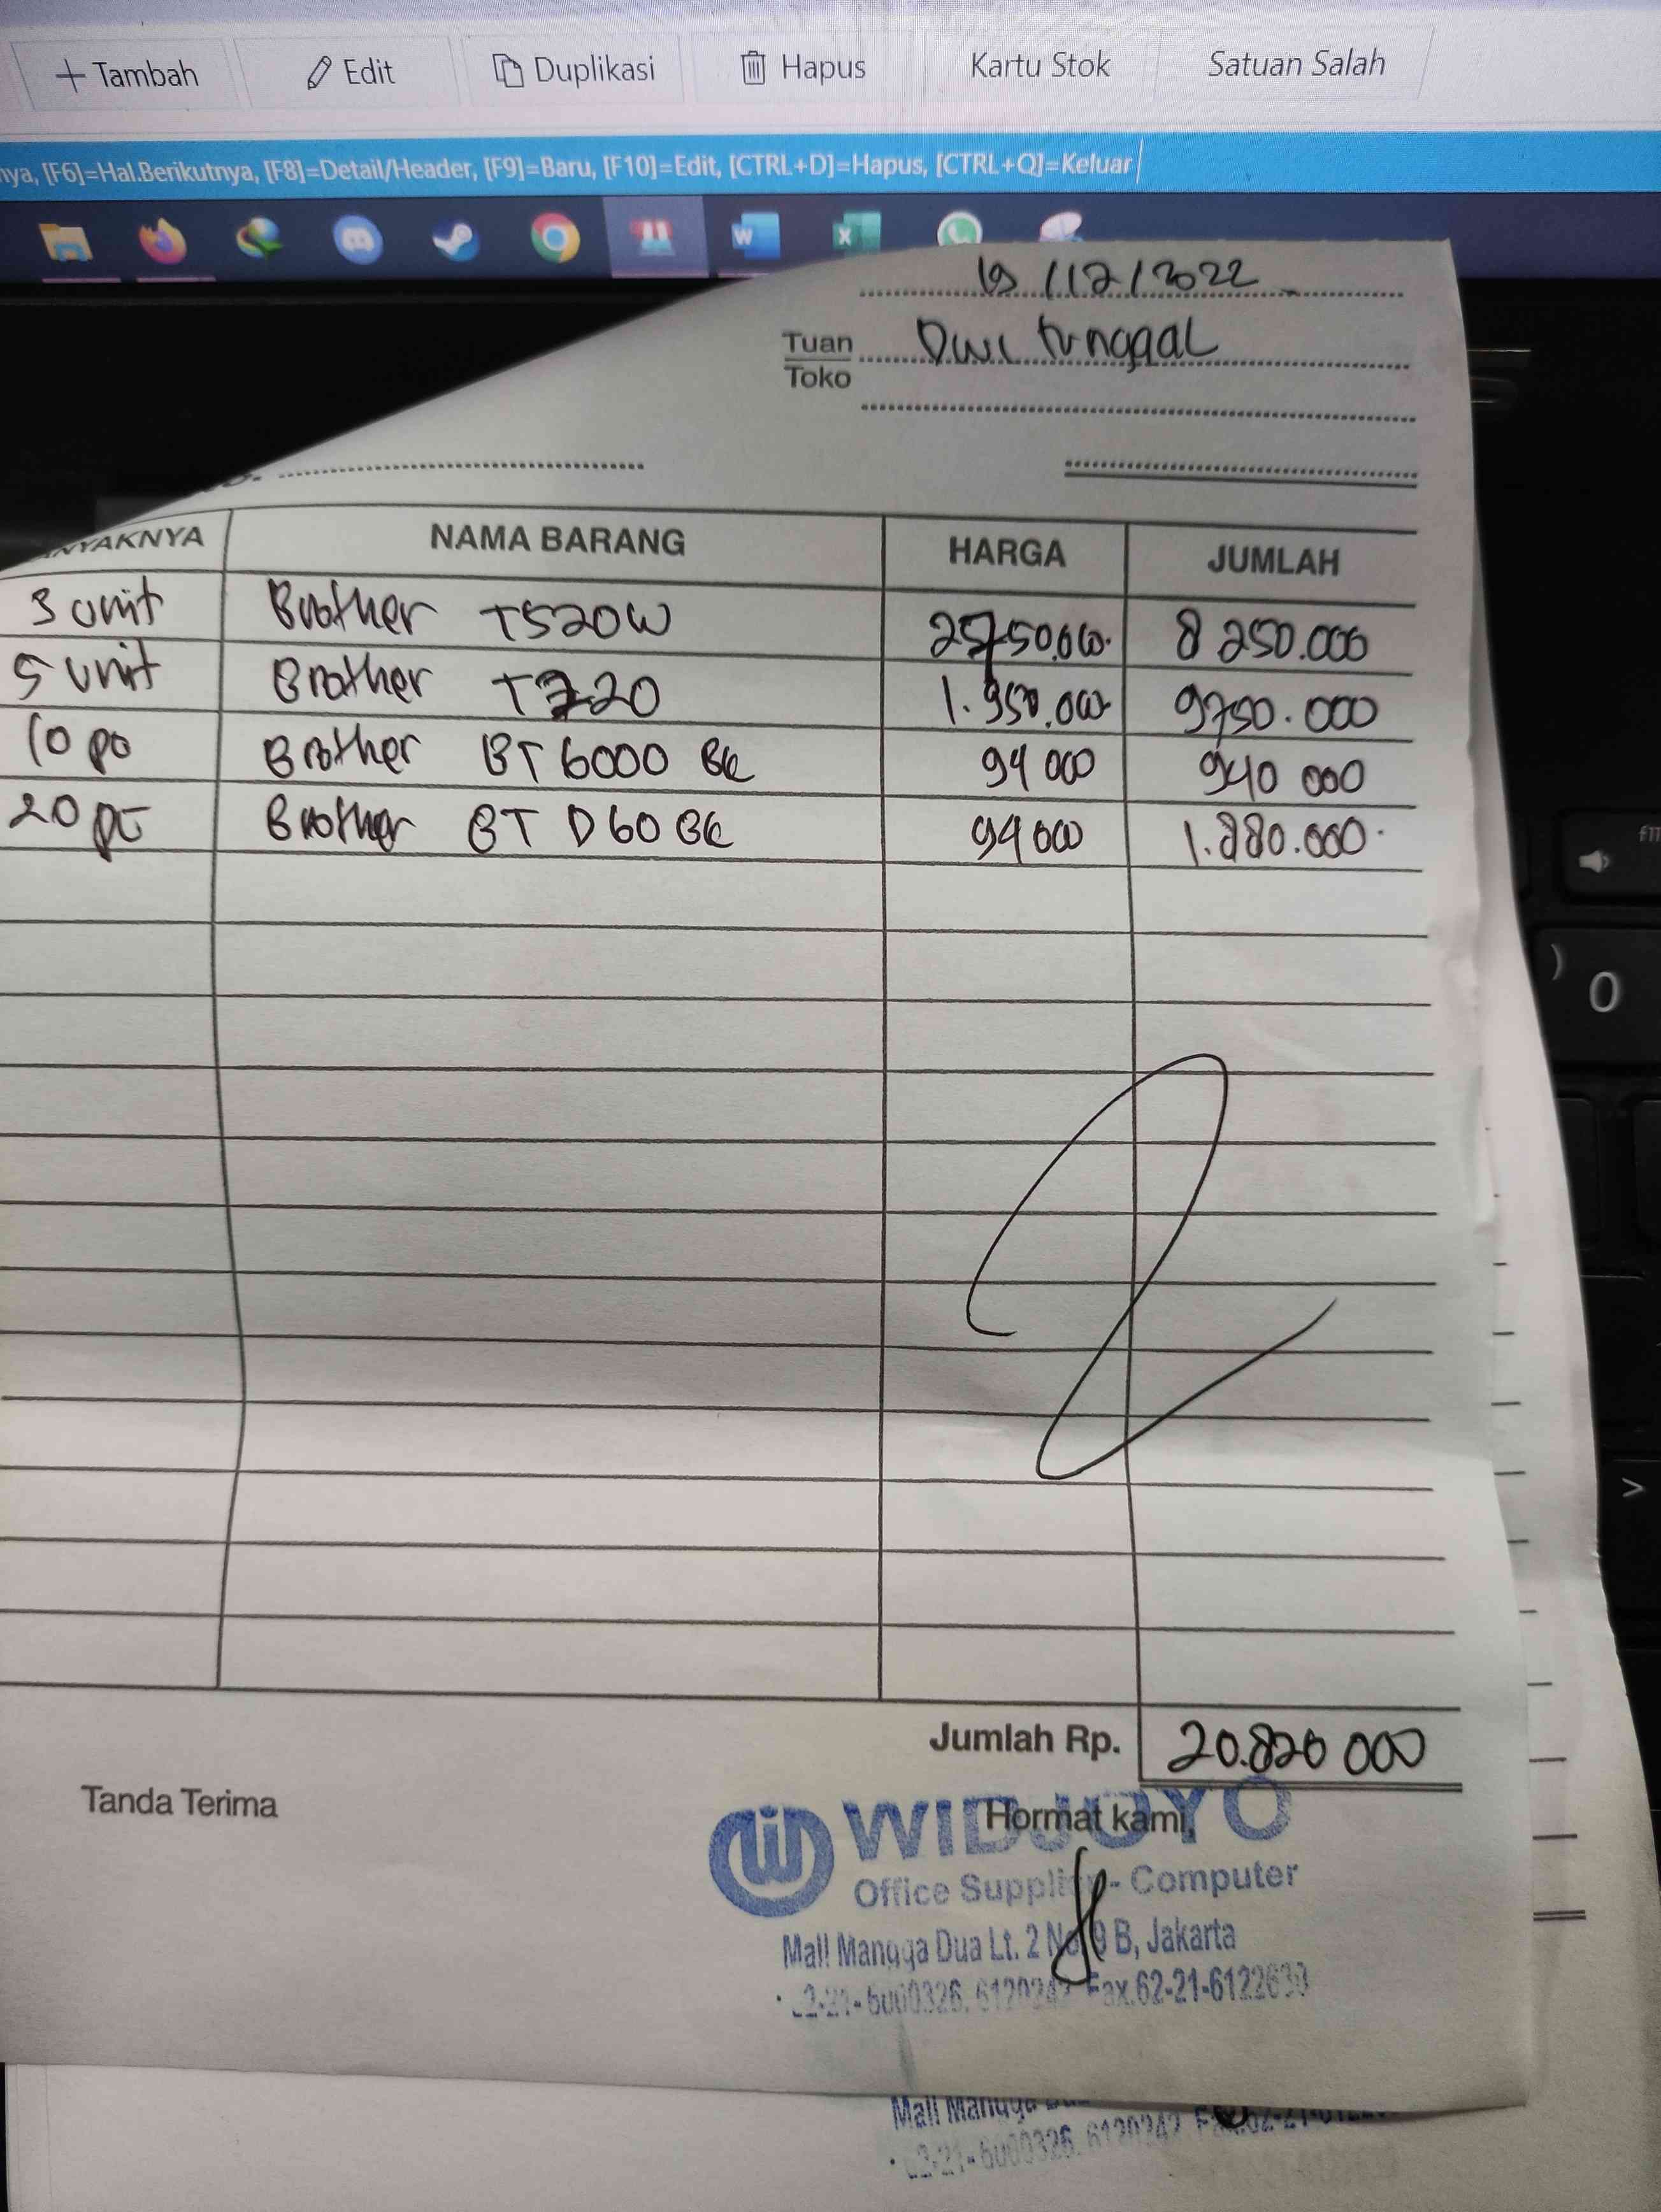 Tambah Edit Duplikasi Hapus Kartu Stok Satuan Salah
nya, [F6]=Hal.Berikutnya, [F8]=Detail/Header, [F9]=Baru, [F10]=Edit, [CTRL+D]=Hapus, [CTRL+Q]=Keluar
19/12/2022
Tuan Dwi Tunggal
Toko
NYAKNYA NAMA BARANG HARGA JUMLAH
3 unit Brother T520W 8 250.000
5 unit Brother T220 1.950.000 9750.000
10 pc Brother BT 6000 BK 94 000 940 000
20 pc Brother BT D60 BK 94 000 1.880.000
Jumlah Rp. 20.820 000
Tanda Terima Hormat kami,
WIDJOYO
Office Supplies - Computer
Mall Mangga Dua Lt. 2 No. 9 B, Jakarta
Fax.62-21-6122630
Mall Mangga
0